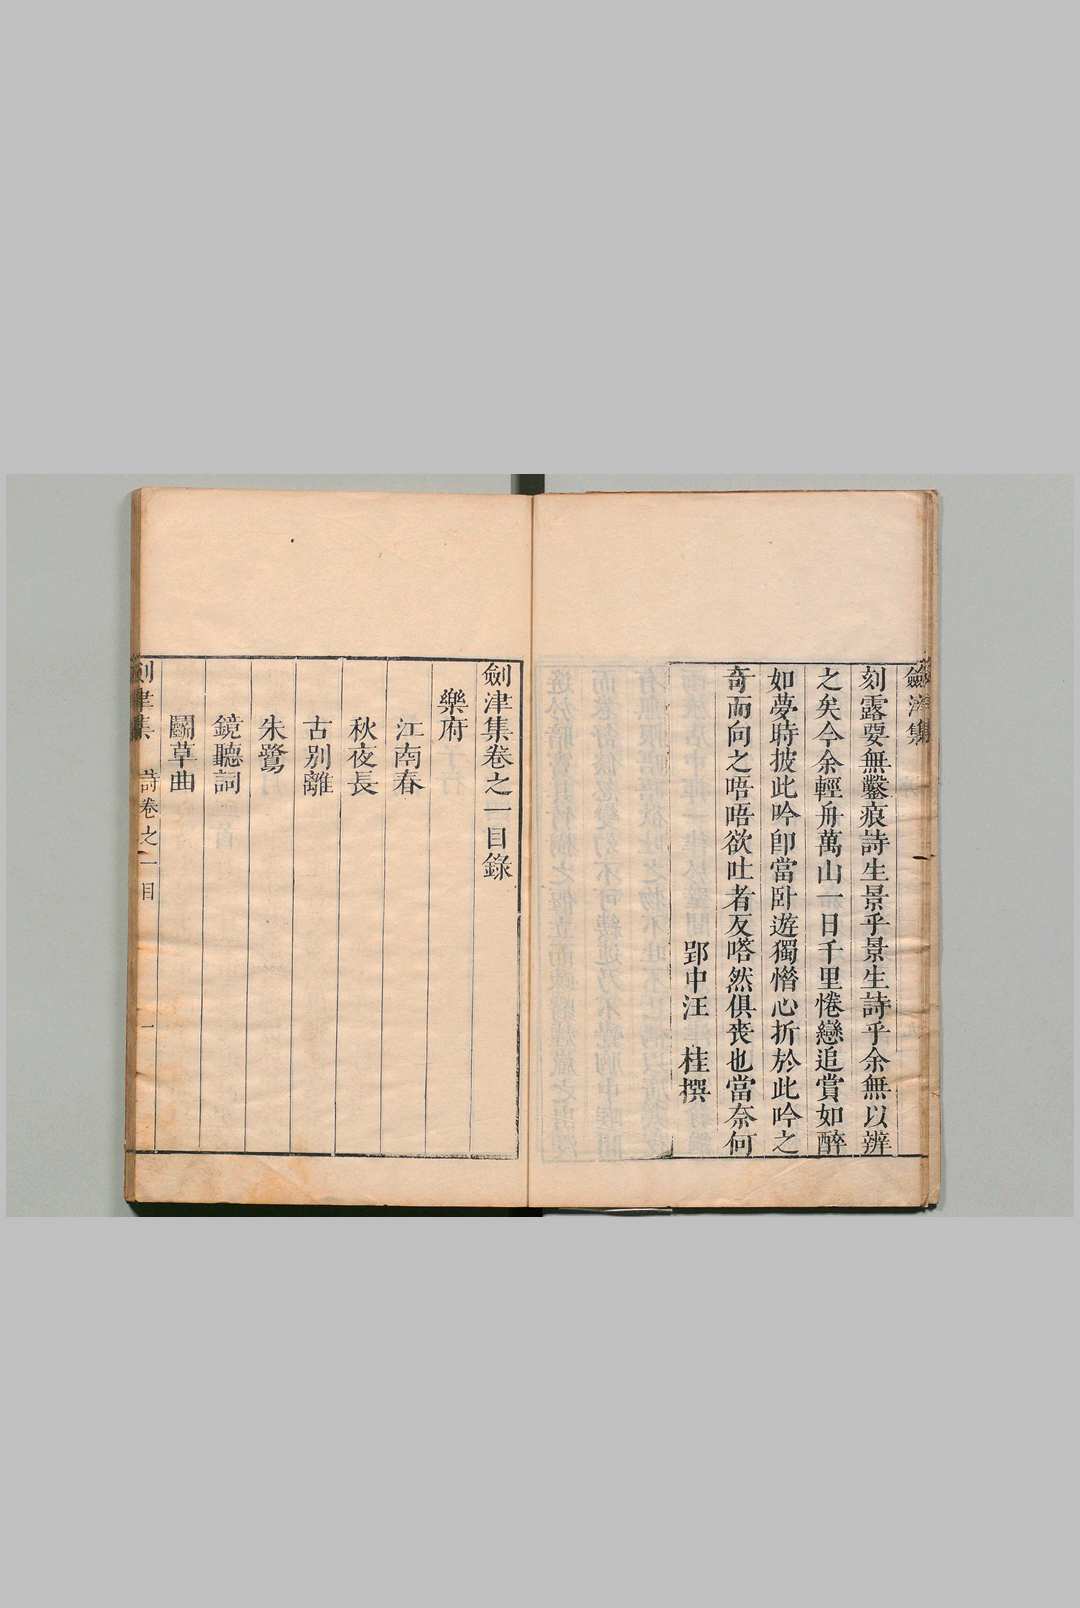 劍津集
刻露要無鑿痕詩生景乎景生詩乎余無以辨
之矣今余輕舟萬山一日千里惓戀追賞如醉
如夢時披此吟卽當卧遊獨憯心折於此吟之
奇而向之唔唔欲吐者反嗒然俱喪也當奈何
郢中汪 桂撰
劍津集卷之一目錄
樂府
江南春
秋夜長
古別離
朱鷺
鏡聽詞
鬭草曲
劍津集 詩卷之一目 一